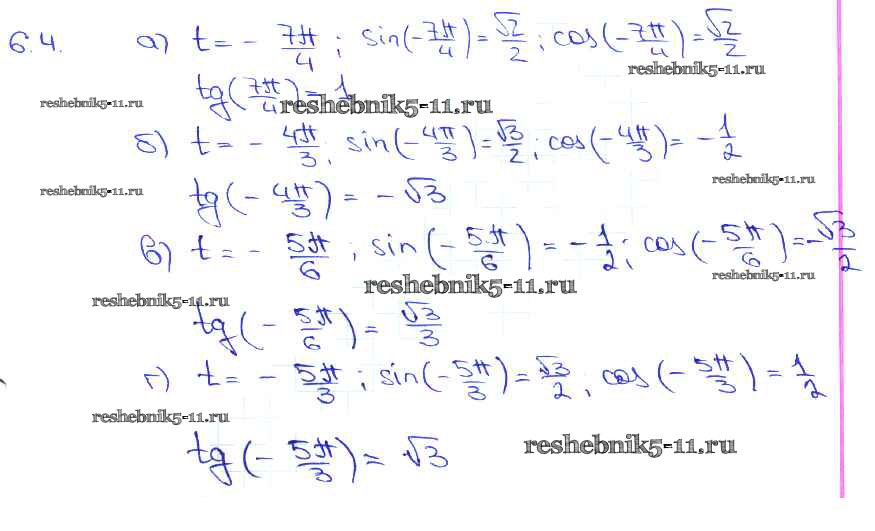 6.4. а) t = - 7π/4 ; sin(-7π/4) = √2/2 ; cos(-7π/4) = √2/2
reshebnik5-11.ru
tg(7π/4) = 1
reshebnik5-11.ru
reshebnik5-11.ru
б) t = - 4π/3 ; sin(-4π/3) = √3/2 ; cos(-4π/3) = -1/2
reshebnik5-11.ru
reshebnik5-11.ru
tg(-4π/3) = -√3
в) t = - 5π/6 ; sin(-5π/6) = -1/2 ; cos(-5π/6) = -√3/2
reshebnik5-11.ru
reshebnik5-11.ru
reshebnik5-11.ru
tg(-5π/6) = √3/3
г) t = - 5π/3 ; sin(-5π/3) = √3/2 ; cos(-5π/3) = 1/2
reshebnik5-11.ru
reshebnik5-11.ru
tg(-5π/3) = √3